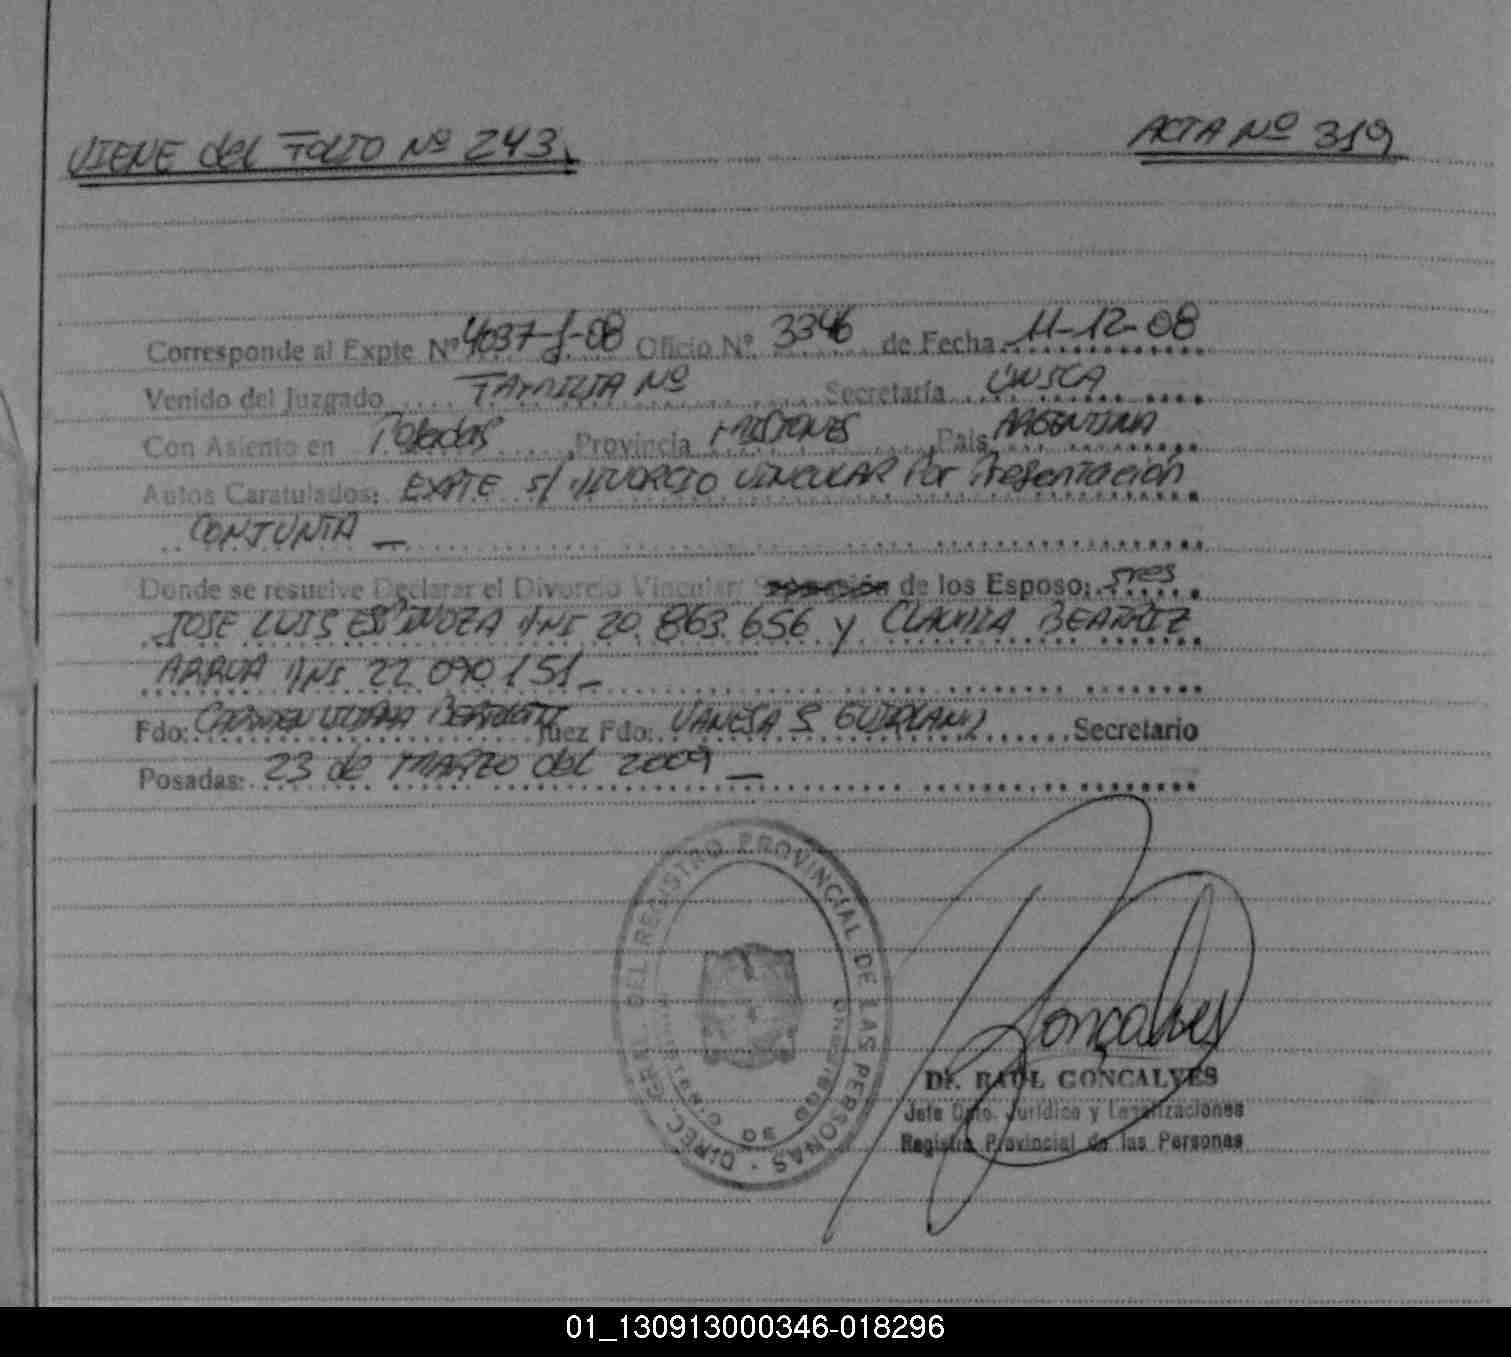 VIENE del FOLIO Nº 243.
ACTA Nº 319
Corresponde al Expte Nº 4037-J-08 Oficio Nº 3346 de Fecha 11-12-08
Venido del Juzgado FAMILIA Nº Secretaría UNICA
Con Asiento en Posadas Provincia MISIONES País ARGENTINA
Autos Caratulados: EXPTE s/ DIVORCIO VINCULAR Por Presentación
CONJUNTA —
Donde se resuelve Declarar el Divorcio Vincular/ Separación de los Esposo: sres
JOSE LUIS ESPINOZA DNI 20.863.656 y CLAUDIA BEATRIZ
ARRUA DNI 22.090.151 —
Fdo: CARMEN Juez Fdo: VANESA S Secretario
Posadas: 23 de MARZO del 2009 —
DIREC. GRAL. DEL REGISTRO PROVINCIAL DE LAS PERSONAS
MINISTERIO DE GOBIERNO
Gonçalves
Dr. RAUL GONCALVES
Jefe Dpto. Jurídico y Legalizaciones
Registro Provincial de las Personas
01_130913000346-018296